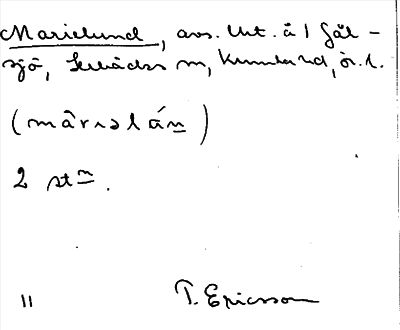 Marielund, avs. lht. å 1 Gål-
sjö, Lerbäcks sn, Kumla hd, ör. l.
(mârıəlán)
2 stn.
11 T. Ericsson